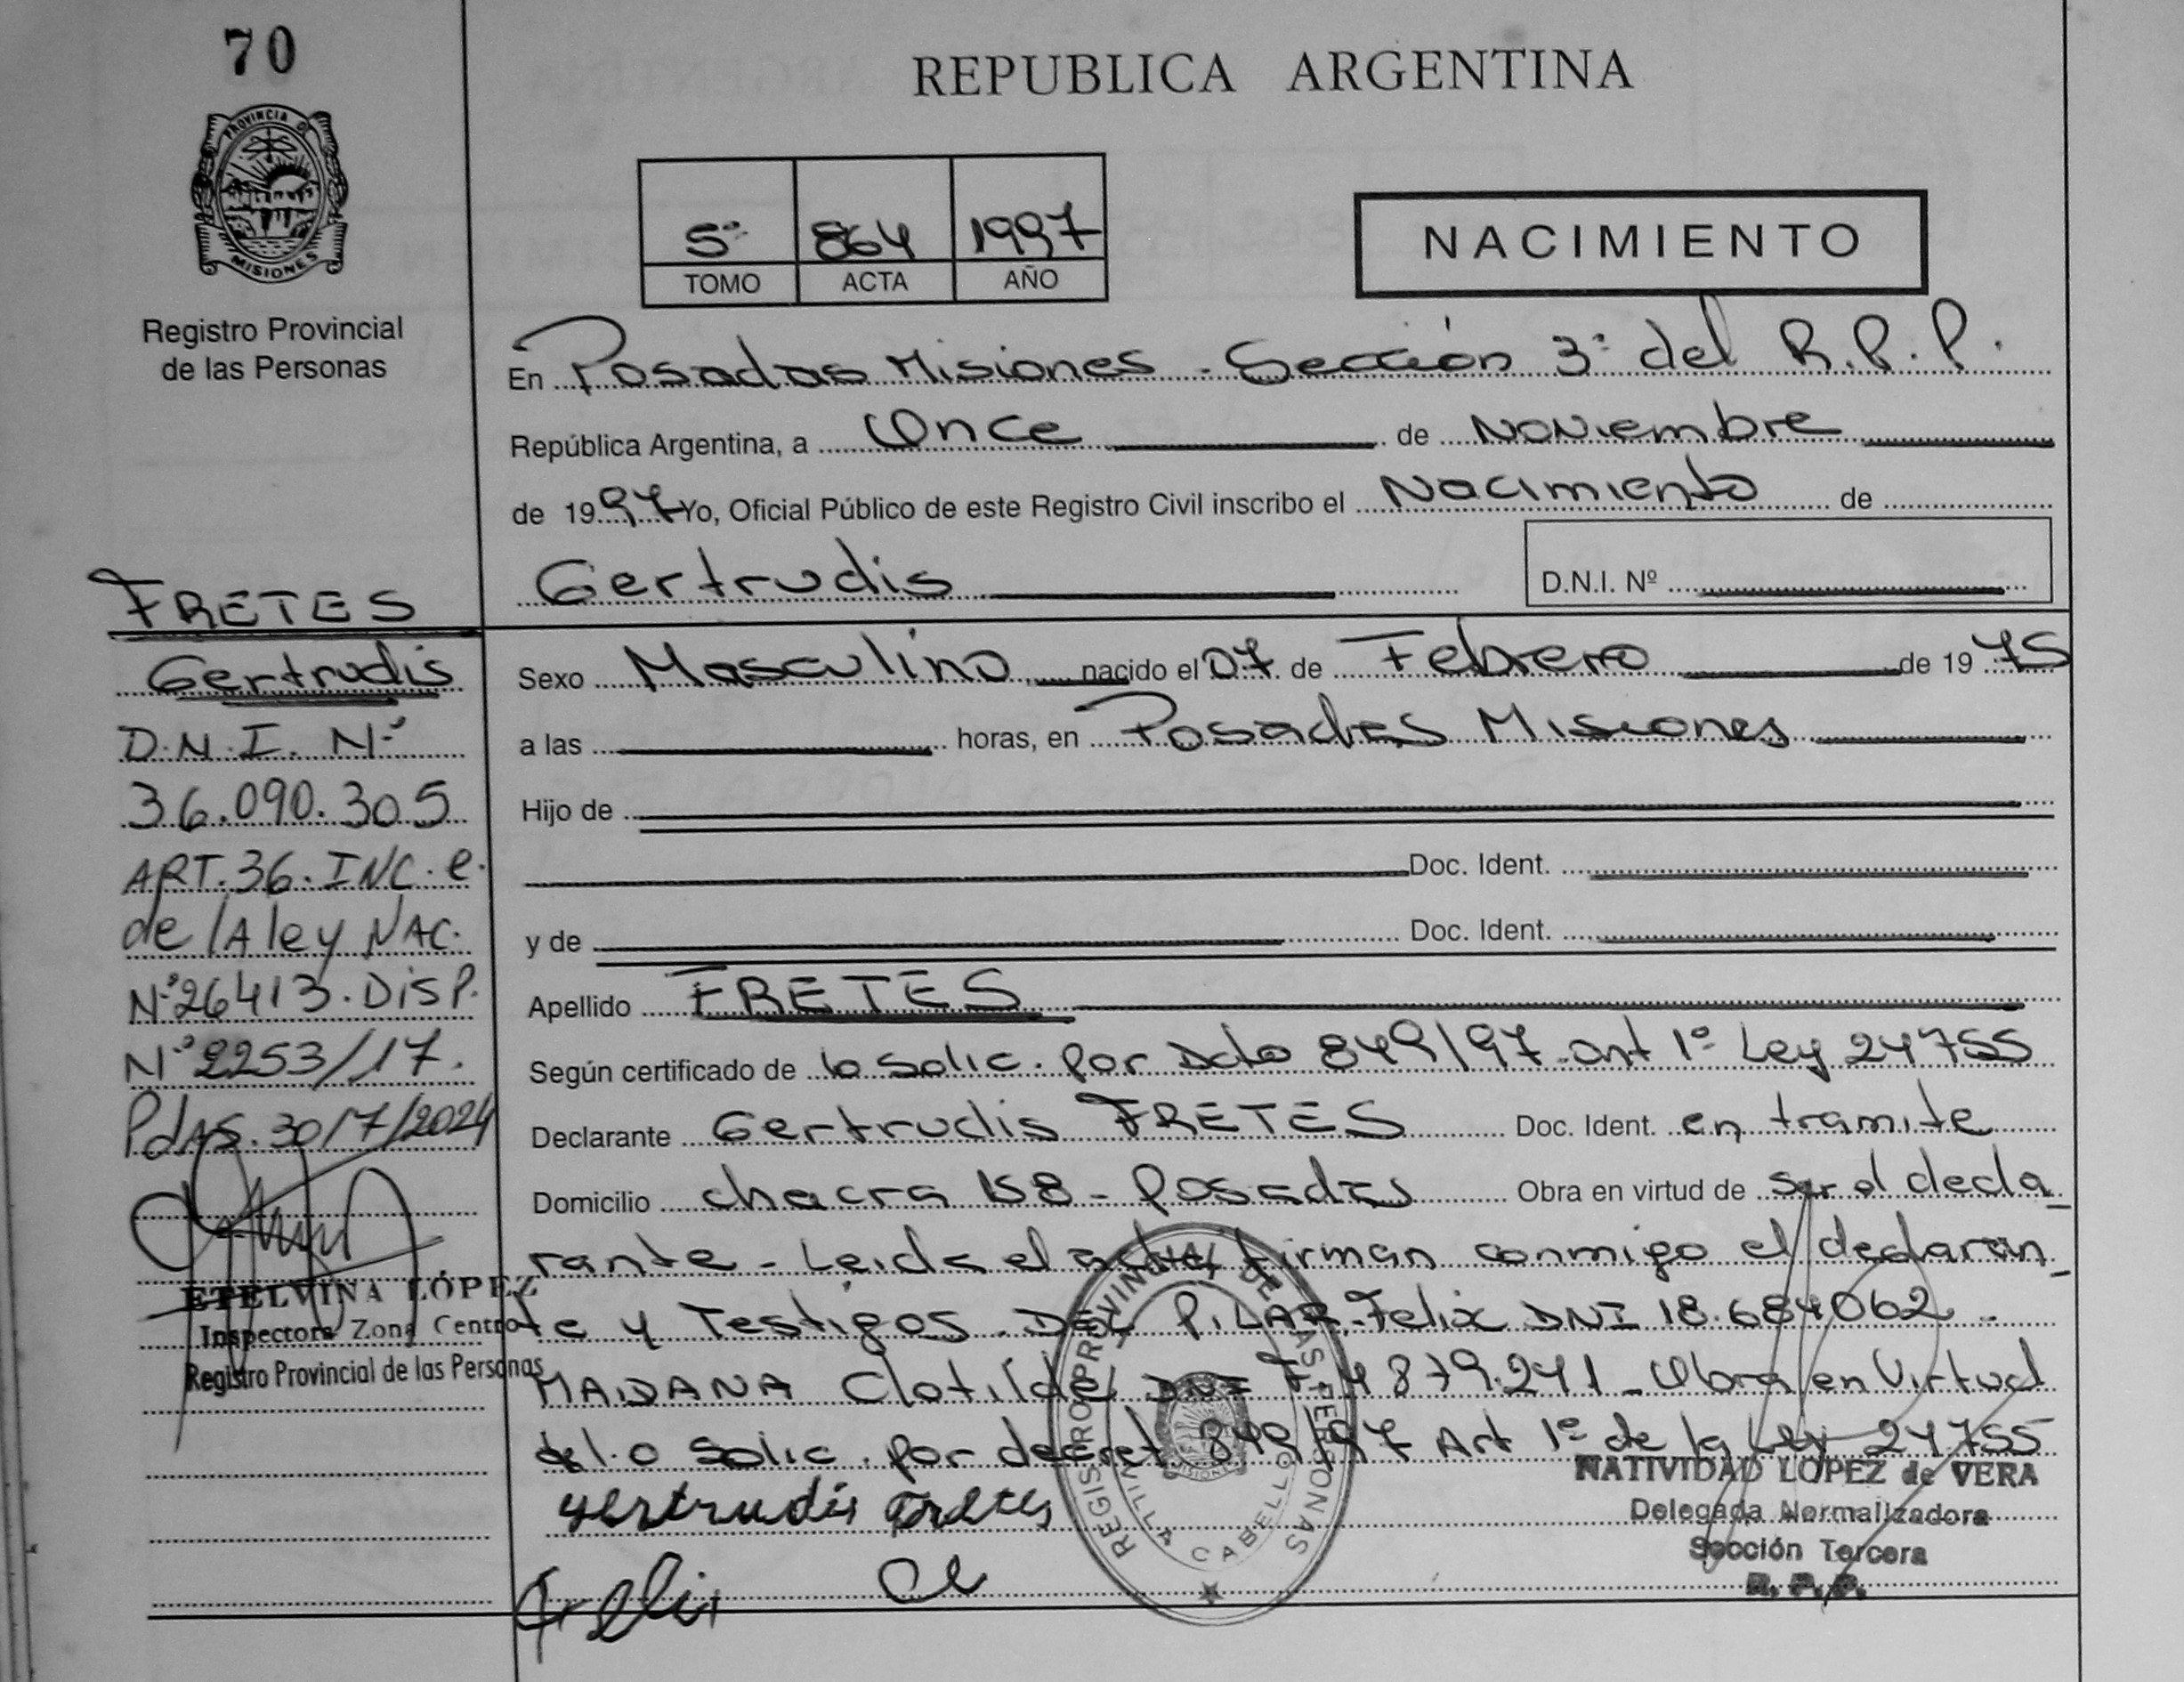 70
PROVINCIA DE
MISIONES
Registro Provincial
de las Personas
REPUBLICA ARGENTINA
5º 864 1997
TOMO ACTA AÑO
NACIMIENTO
En Posadas Misiones - Sección 3ª del R.P.P.
República Argentina, a Once de Noviembre
de 1997 Yo, Oficial Público de este Registro Civil inscribo el Nacimiento de
Gertrudis D.N.I. Nº
Sexo Masculino nacido el 07 de Febrero de 1975
a las horas, en Posadas Misiones
Hijo de
Doc. Ident.
y de Doc. Ident.
Apellido FRETES
Según certificado de lo solic. por Dcto 849/97 - art 1º Ley 24755
Declarante Gertrudis FRETES Doc. Ident. en tramite
Domicilio chacra 158 - Posadas Obra en virtud de ser el decla
rante - Leida el acta firman conmigo el declaran
te y Testigos. DEL PILAR Felix DNI 18.684062 -
MAIDANA Clotilde DNI F.4879.241 - Obra en Virtud
de l.o solic. por decret. 849/97 Art 1º de la Ley 24755
Gertrudis Fretes
Felix
NATIVIDAD LOPEZ de VERA
Delegada Normalizadora
Sección Tercera
R. P. P.
REGISTRO PROVINCIAL DE LAS PERSONAS
VILLA CABELLO
FRETES
Gertrudis
D.N.I. Nº
36.090.305
ART.36.INC.e.
de lA ley NAC.
Nº26413.DISP.
Nº2253/17.
PdAS.30/7/2024
ETELVINA LÓPEZ
Inspectora Zona Centro
Registro Provincial de las Personas